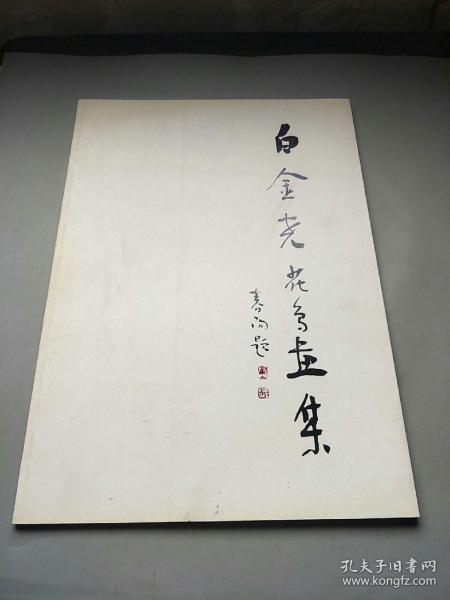 白金尧花鸟画集
题
孔夫子旧书网
www.kongfz.com